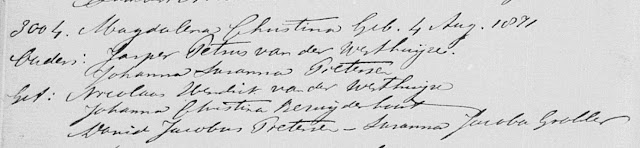 3004. Magdalena Christina Geb. 4 Aug. 1871
Ouders: Jasper Petrus van der Westhuize.
Johanna Susanna Pretersen
Get: Nicolaas Hendrik van der Westhuize
Johanna Christina Bezuijdenhout
Daniel Jacobus Pretersen – Susanna Jacoba Grobler